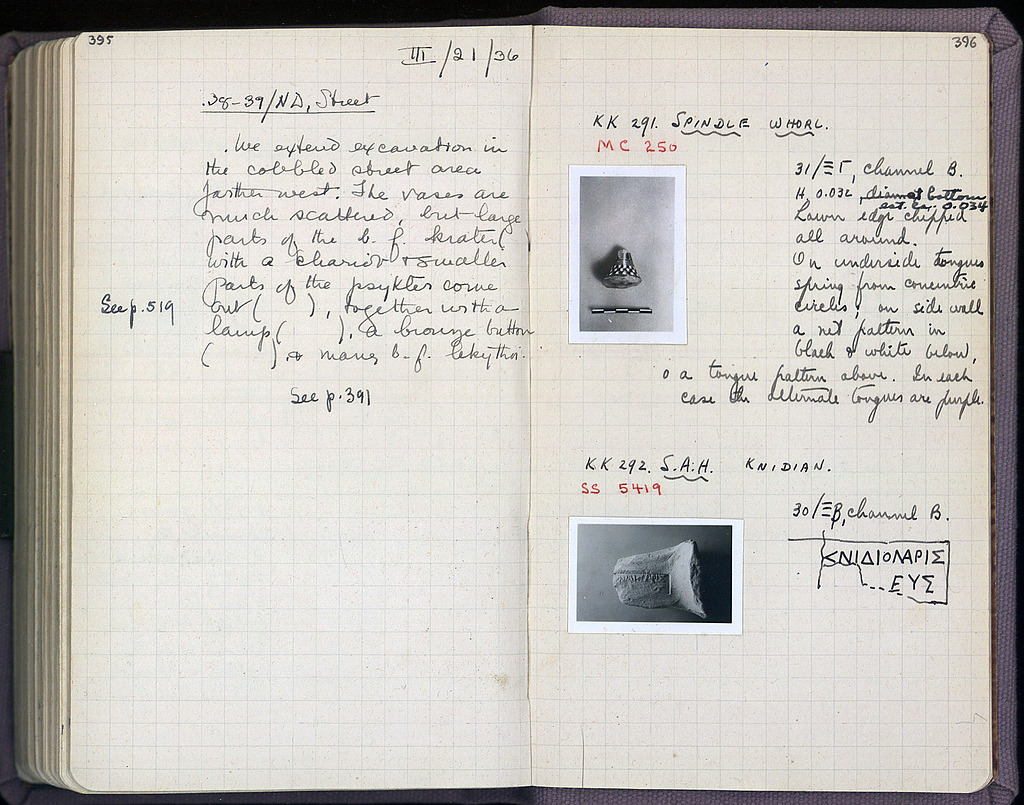 395
III/21/36
38-39/ND, Street
We extend excavation in
the cobbled street area
farther west. The vases are
much scattered, but large
parts of the b. f. krater (
with a chariot & smaller
parts of the psykter come
See p. 519
out (      ), together with a
lamp (      ), a bronze button
(      ) & many b-f. lekythoi.
See p. 391
396
KK 291. SPINDLE WHORL.
MC 250
31/ΞΓ, channel B.
H. 0.032, diam at bottom
est. ca. 0.034
Lower edge chipped
all around.
On underside tongues
spring from concentric
circles; on side wall
a net pattern in
black & white below,
a tongue pattern above. In each
case the alternate tongues are purple.
KK 292. S.A.H. KNIDIAN.
SS 5419
30/ΞΒ, channel B.
ΚΝΙΔΙΟΝΑΡΙΣ
ΕΥΣ